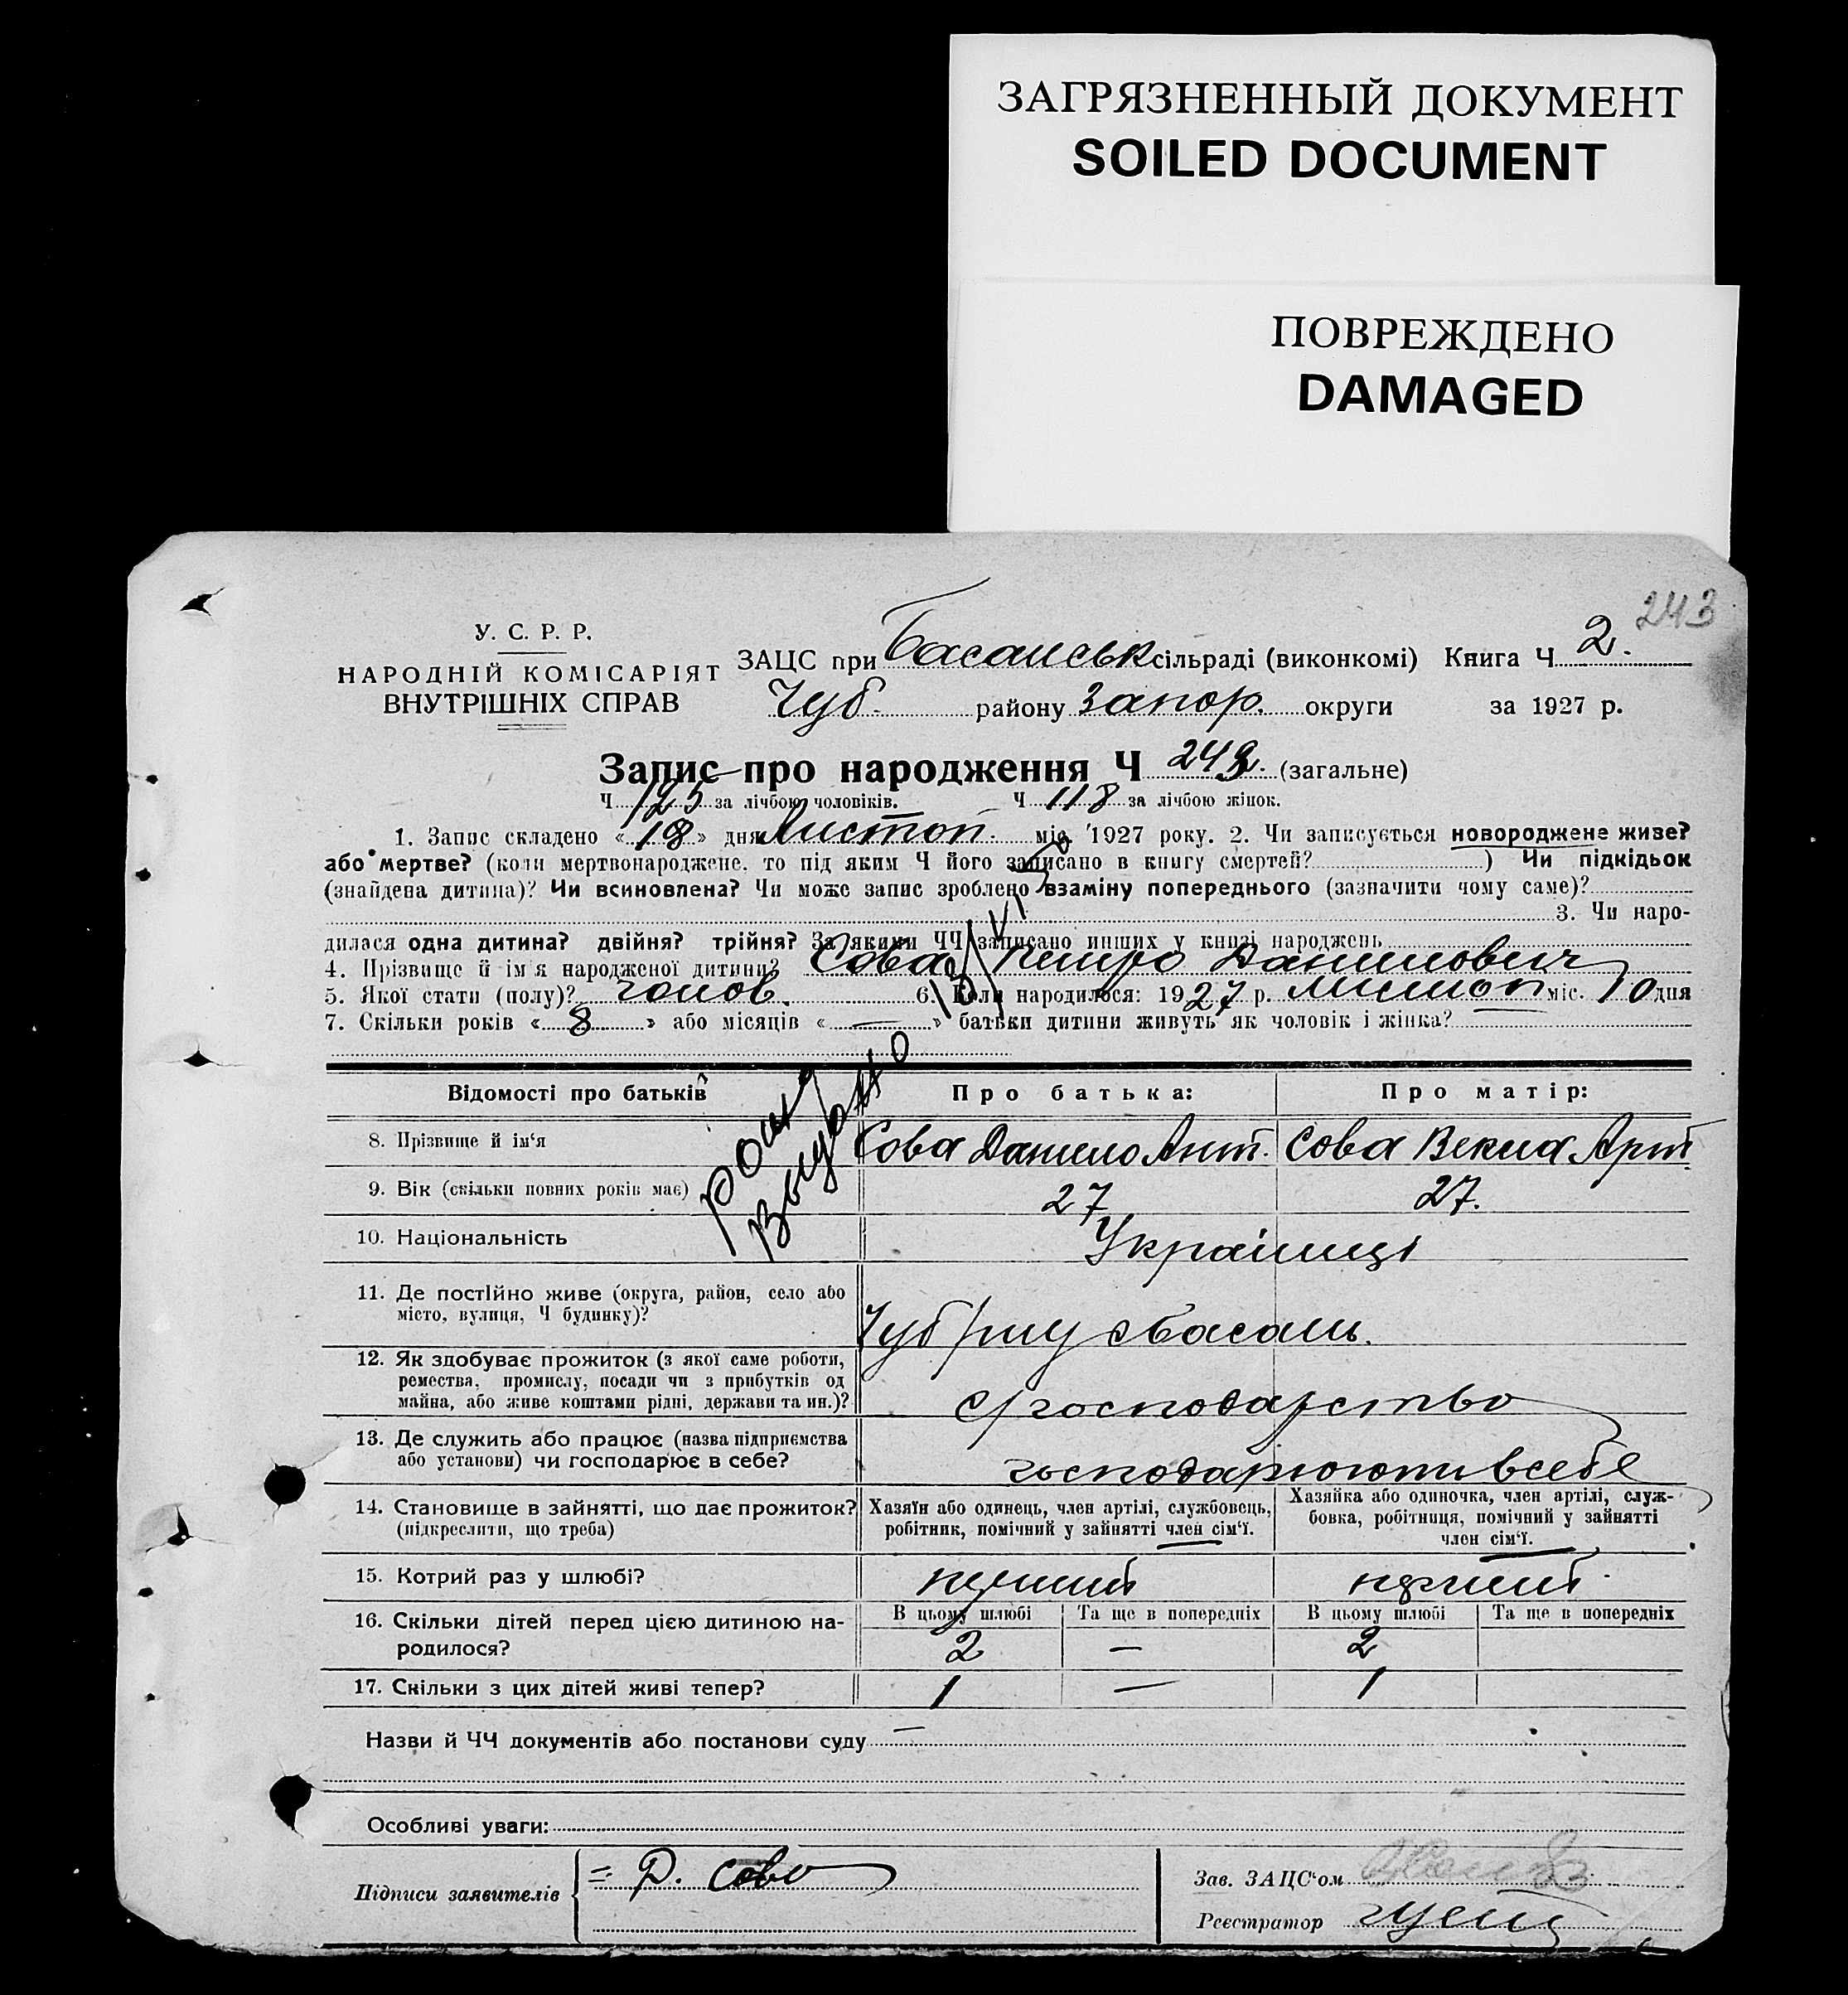 ЗАГРЯЗНЕННЫЙ ДОКУМЕНТ
SOILED DOCUMENT
ПОВРЕЖДЕНО
DAMAGED
243
У. С. Р. Р.
НАРОДНІЙ КОМІСАРІЯТ
ВНУТРІШНІХ СПРАВ
ЗАЦС при Басанськ сільраді (виконкомі) Книга Ч 2.
Чуб. району Запор. округи за 1927 р.
Запис про народження Ч 243. (загальне)
Ч 125 за лічбою чоловіків. Ч 118 за лічбою жінок.
1. Запис складено « 18 » дня Листоп. міс. 1927 року. 2. Чи записується новороджене живе?
або мертве? (коли мертвонароджене, то під яким Ч його записано в книгу смертей? ) Чи підкідьок
(знайдена дитина)? Чи всиновлена? Чи може запис зроблено взаміну попереднього (зазначити чому саме)?
3. Чи наро-
дилася одна дитина? двійня? трійня? За якими ЧЧ записано инших у книзі народжень
4. Прізвище й ім'я народженої дитини? Сова Петро Данилович
5. Якої стати (полу)? чолов. 6. Коли народилося: 1927 р. листоп міс. 10 дня
7. Скільки років « 8 » або місяців « — » батьки дитини живуть як чоловік і жінка?
Відомості про батьків Про батька: Про матір:
8. Прізвище й ім'я Сова Данило Ант. Сова Векла Арт
9. Вік (скільки повних років має) 27 27.
10. Національність Українці
11. Де постійно живе (округа, район, село або
місто, вулиця, Ч будинку)? Чуб р-ну с Басань.
12. Як здобуває прожиток (з якої саме роботи,
ремества, промислу, посади чи з прибутків од
майна, або живе коштами рідні, держави та ин.)? с/господарство
13. Де служить або працює (назва підприємства
або установи) чи господарює в себе? господарюють в себе
14. Становище в зайнятті, що дає прожиток?
(підкреслити, що треба)
Хазяїн або одинець, член артілі, службовець,
робітник, помічний у зайнятті член сім'ї.
Хазяйка або одиночка, член артілі, служ-
бовка, робітниця, помічний у зайнятті
член сім'ї.
15. Котрий раз у шлюбі? перший перший
16. Скільки дітей перед цією дитиною на-
родилося?
В цьому шлюбі Та ще в попередніх В цьому шлюбі Та ще в попередніх
2 — 2
17. Скільки з цих дітей живі тепер? 1 — 1
Назви й ЧЧ документів або постанови суду —
Особливі уваги:
Підписи заявителів = Д. Сова
Зав. ЗАЦС'ом
Реєстратор